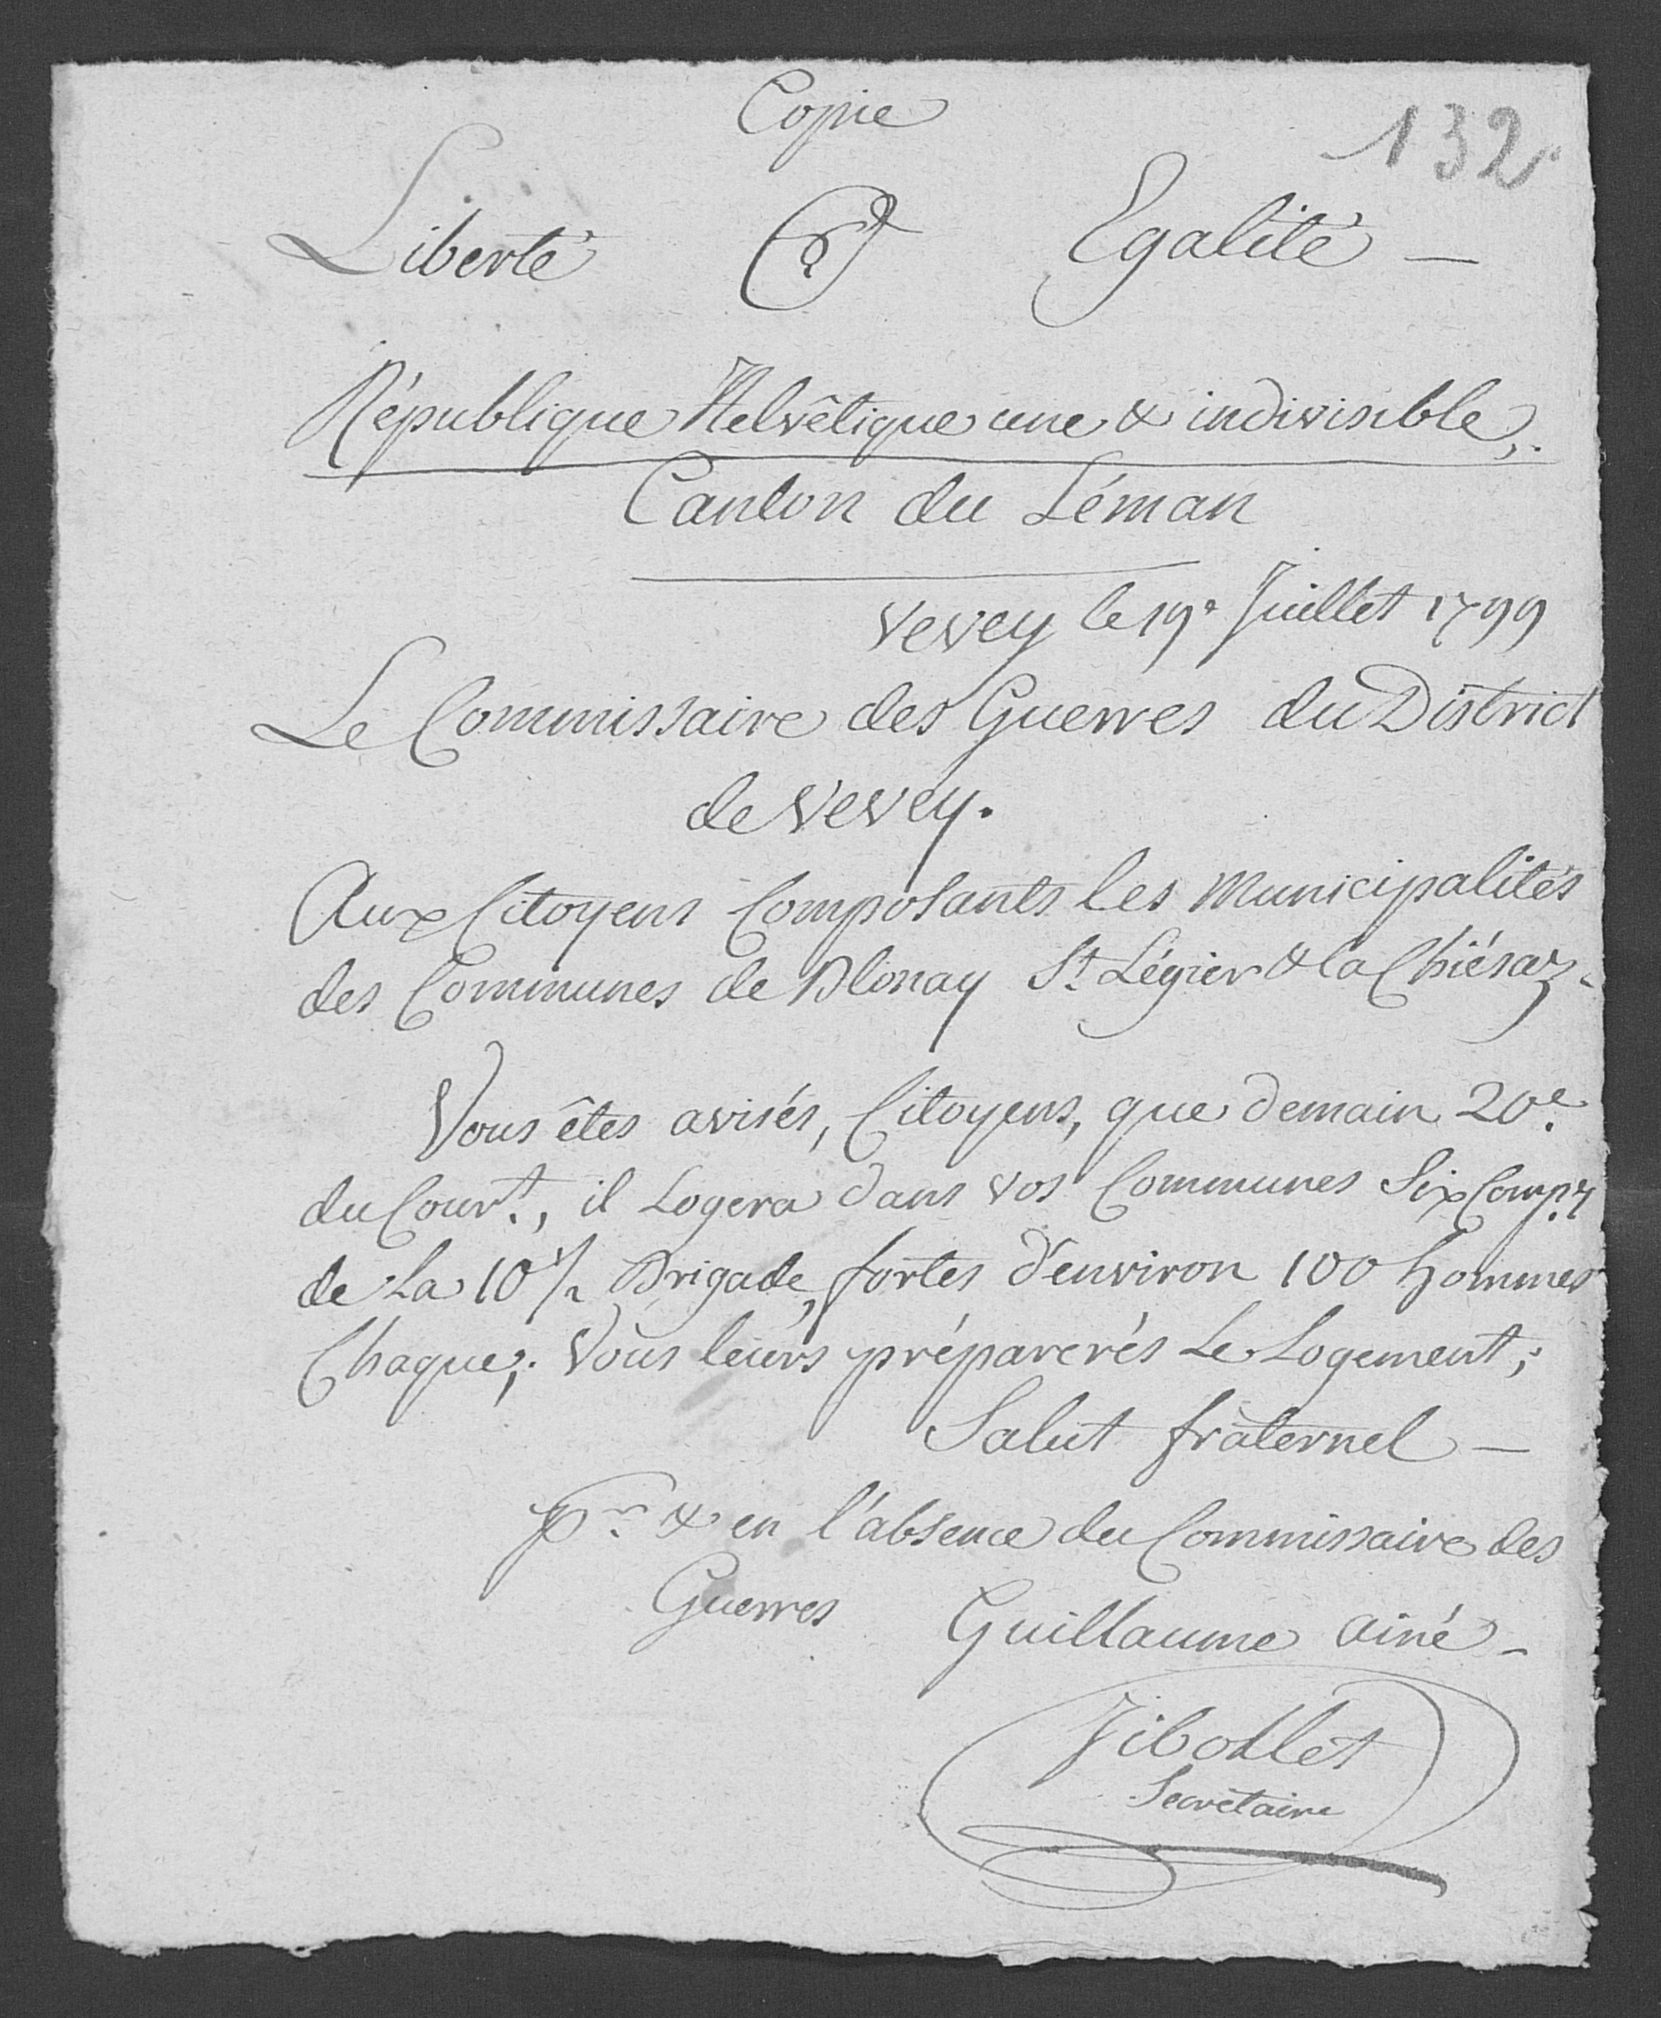 Copie
132
Liberté & Egalité —
République Helvêtique une & indivisible,.
Canton du Léman
Vevey le 19e Juillet 1799
Le Commissaire des Guerres du District
de Vevey.
Aux Citoyens Composants les Municipalités
des Communes de Blonay St Légier & la Chiésaz.
Vous êtes avisés, Citoyens, que demain 20e.
du Cour.t, il Logera dans vos Communes Six Comp.es
de La 10e 1/2 Brigade, fortes d'environ 100 hommes
Chaque; Vous leurs préparerés Le Logement;
Salut fraternel —
pr & en l'absence du Commissaire des
Guerres Guillaume ainé —
Secrétaire